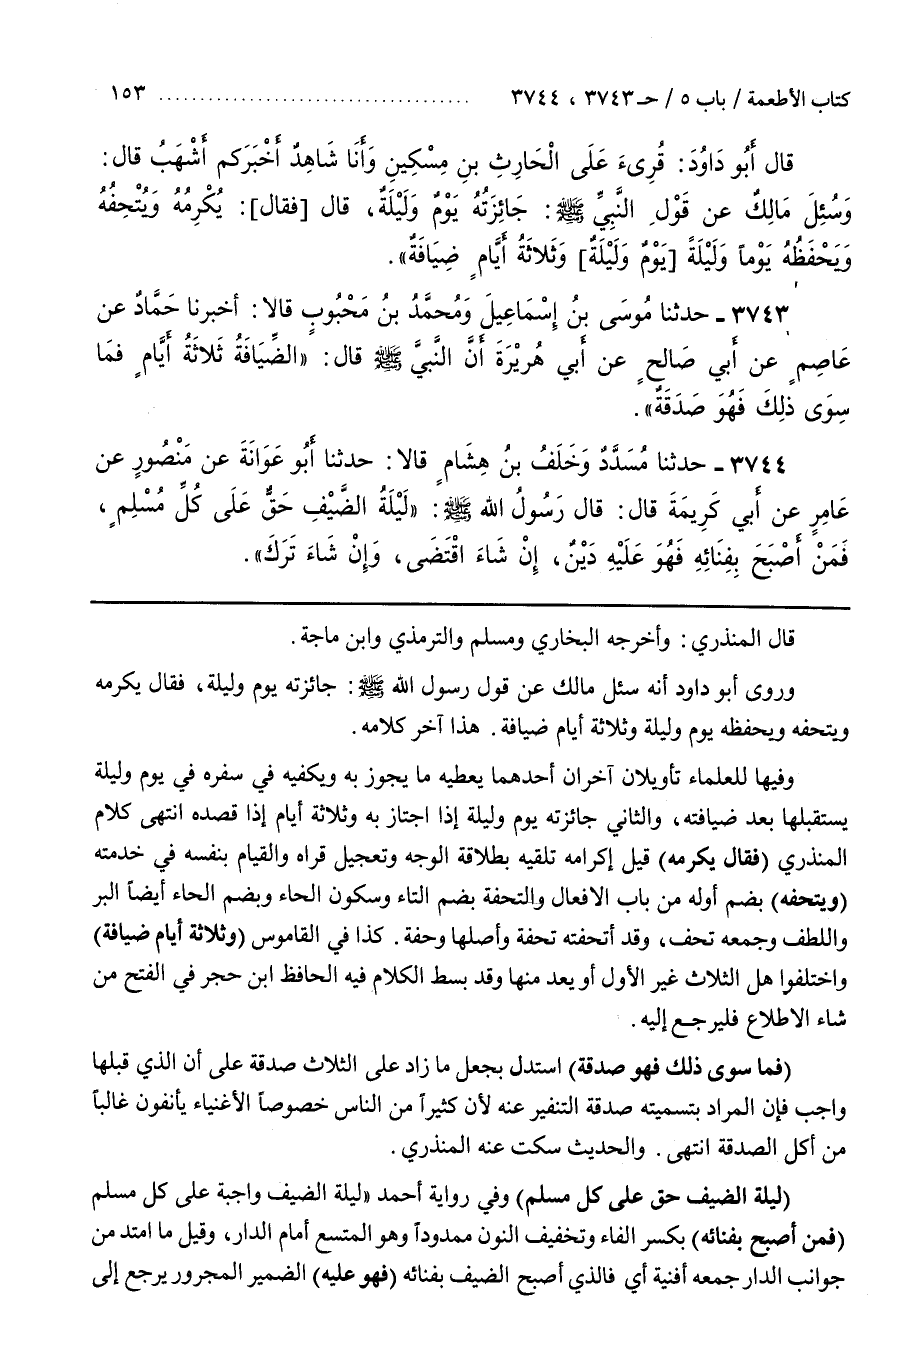 كتاب الأطعمة / باب ٥ / حـ ٣٧٤٣ ، ٣٧٤٤ ..................................... ١٥٣
قال أَبُو دَاوُدَ: قُرِىءَ عَلَى الْحَارِثِ بنِ مِسْكِينٍ وَأَنَا شَاهِدٌ أَخْبَرَكم أَشْهَبُ قال:
وَسُئِلَ مَالِكٌ عن قَوْلِ النَّبِيِّ ﷺ: جَائِزَتُهُ يَوْمٌ وَلَيْلَةٌ، قال [فقال]: يُكْرِمُهُ وَيُتْحِفُهُ
وَيَحْفَظُهُ يَوْماً وَلَيْلَةً [يَوْمٌ وَلَيْلَةٌ] وَثَلَاثَةُ أَيَّامٍ ضِيَافَةٌ».
٣٧٤٣ ـ حدثنا مُوسَى بنُ إِسْمَاعِيلَ وَمُحمَّدُ بنُ مَحْبُوبٍ قالا: أخبرنا حَمَّادٌ عن
عَاصِمٍ عن أَبي صَالحٍ عن أَبي هُرَيْرَةَ أَنَّ النَّبيَّ ﷺ قال: «الضِّيَافَةُ ثَلَاثَةُ أَيَّامٍ فمَا
سِوَى ذلِكَ فَهُوَ صَدَقَةٌ».
٣٧٤٤ ـ حدثنا مُسَدَّدٌ وَخَلَفُ بنُ هِشَامٍ قالا: حدثنا أَبُو عَوَانَةَ عن مَنْصُورٍ عن
عَامِرٍ عن أَبي كَرِيمَةَ قال: قال رَسُولُ الله ﷺ: «لَيْلَةُ الضَّيْفِ حَقٌّ عَلَى كُلِّ مُسْلِمٍ،
فَمَنْ أَصْبَحَ بِفِنَائِهِ فَهُوَ عَلَيْهِ دَيْنٌ، إِنْ شَاءَ اقْتَضَى، وَإِنْ شَاءَ تَرَكَ».
قال المنذري: وأخرجه البخاري ومسلم والترمذي وابن ماجة.
وروى أبو داود أنه سئل مالك عن قول رسول الله ﷺ: جائزته يوم وليلة، فقال يكرمه
ويتحفه ويحفظه يوم وليلة وثلاثة أيام ضيافة. هذا آخر كلامه.
وفيها للعلماء تأويلان آخران أحدهما يعطيه ما يجوز به ويكفيه في سفره في يوم وليلة
يستقبلها بعد ضيافته، والثاني جائزته يوم وليلة إذا اجتاز به وثلاثة أيام إذا قصده انتهى كلام
المنذري (فقال يكرمه) قيل إكرامه تلقيه بطلاقة الوجه وتعجيل قراه والقيام بنفسه في خدمته
(ويتحفه) بضم أوله من باب الافعال والتحفة بضم التاء وسكون الحاء وبضم الحاء أيضاً البر
واللطف وجمعه تحف، وقد أتحفته تحفة وأصلها وحفة. كذا في القاموس (وثلاثة أيام ضيافة)
واختلفوا هل الثلاث غير الأول أو يعد منها وقد بسط الكلام فيه الحافظ ابن حجر في الفتح من
شاء الاطلاع فليرجع إليه.
(فما سوى ذلك فهو صدقة) استدل بجعل ما زاد على الثلاث صدقة على أن الذي قبلها
واجب فإن المراد بتسميته صدقة التنفير عنه لأن كثيراً من الناس خصوصاً الأغنياء يأنفون غالباً
من أكل الصدقة انتهى. والحديث سكت عنه المنذري.
(ليلة الضيف حق على كل مسلم) وفي رواية أحمد «ليلة الضيف واجبة على كل مسلم
(فمن أصبح بفنائه) بكسر الفاء وتخفيف النون ممدوداً وهو المتسع أمام الدار، وقيل ما امتد من
جوانب الدار جمعه أفنية أي فالذي أصبح الضيف بفنائه (فهو عليه) الضمير المجرور يرجع إلى